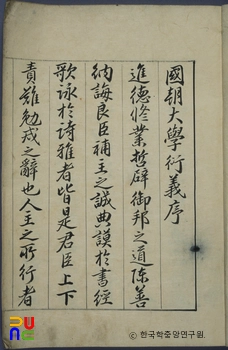 國朝大學衍義序
進德修業哲辟御邦之道陳善
納誨良臣補主之誠典謨於書經
歌詠於詩雅者皆是君臣上下
責難勉戒之辭也人主之所行者
한국학중앙연구원